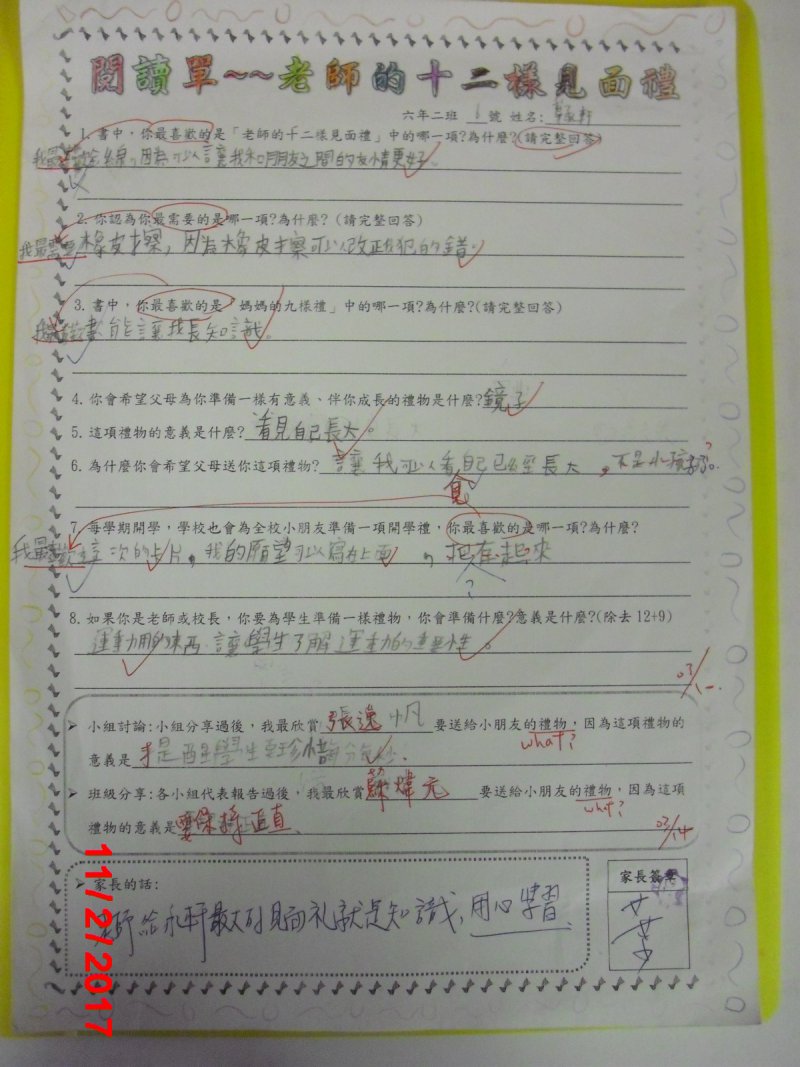 閱讀單~~老師的十二樣見面禮
六年二班 號 姓名:
1. 書中,你最喜歡的是「老師的十二樣見面禮」中的哪一項?為什麼?(請完整回答)
線,因為可以讓我和朋友之間的友情更好。
2. 你認為你最需要的是哪一項?為什麼? (請完整回答)
我最需要橡皮擦,因為橡皮擦可以改正我犯的錯。
3. 書中,你最喜歡的是「媽媽的九樣禮」中的哪一項?為什麼?(請完整回答)
書能讓我長知識。
4. 你會希望父母為你準備一樣有意義、伴你成長的禮物是什麼?鏡子
5. 這項禮物的意義是什麼? 看見自己長大。
6. 為什麼你會希望父母送你這項禮物? 讓我可以看自己已經長大,不是小孩子。
7. 每學期開學,學校也會為全校小朋友準備一項開學禮,你最喜歡的是哪一項?為什麼?
我最喜歡這次的卡片,我的願望可以寫在上面,
?
8. 如果你是老師或校長,你要為學生準備一樣禮物,你會準備什麼?意義是什麼?(除去 12+9)
運動用的東西,讓學生了解運動的重要性。
03/
➢ 小組討論:小組分享過後,我最欣賞 張逸帆 要送給小朋友的禮物,因為這項禮物的
what?
意義是 提醒學生要珍惜每分每秒.
➢ 班級分享:各小組代表報告過後,我最欣賞 蘇煒元 要送給小朋友的禮物,因為這項
what?
禮物的意義是要保持正直.
03/14
➢ 家長的話:
老師給永軒最大的見面礼就是知識,用心學習.
家長簽章
11/27/2017